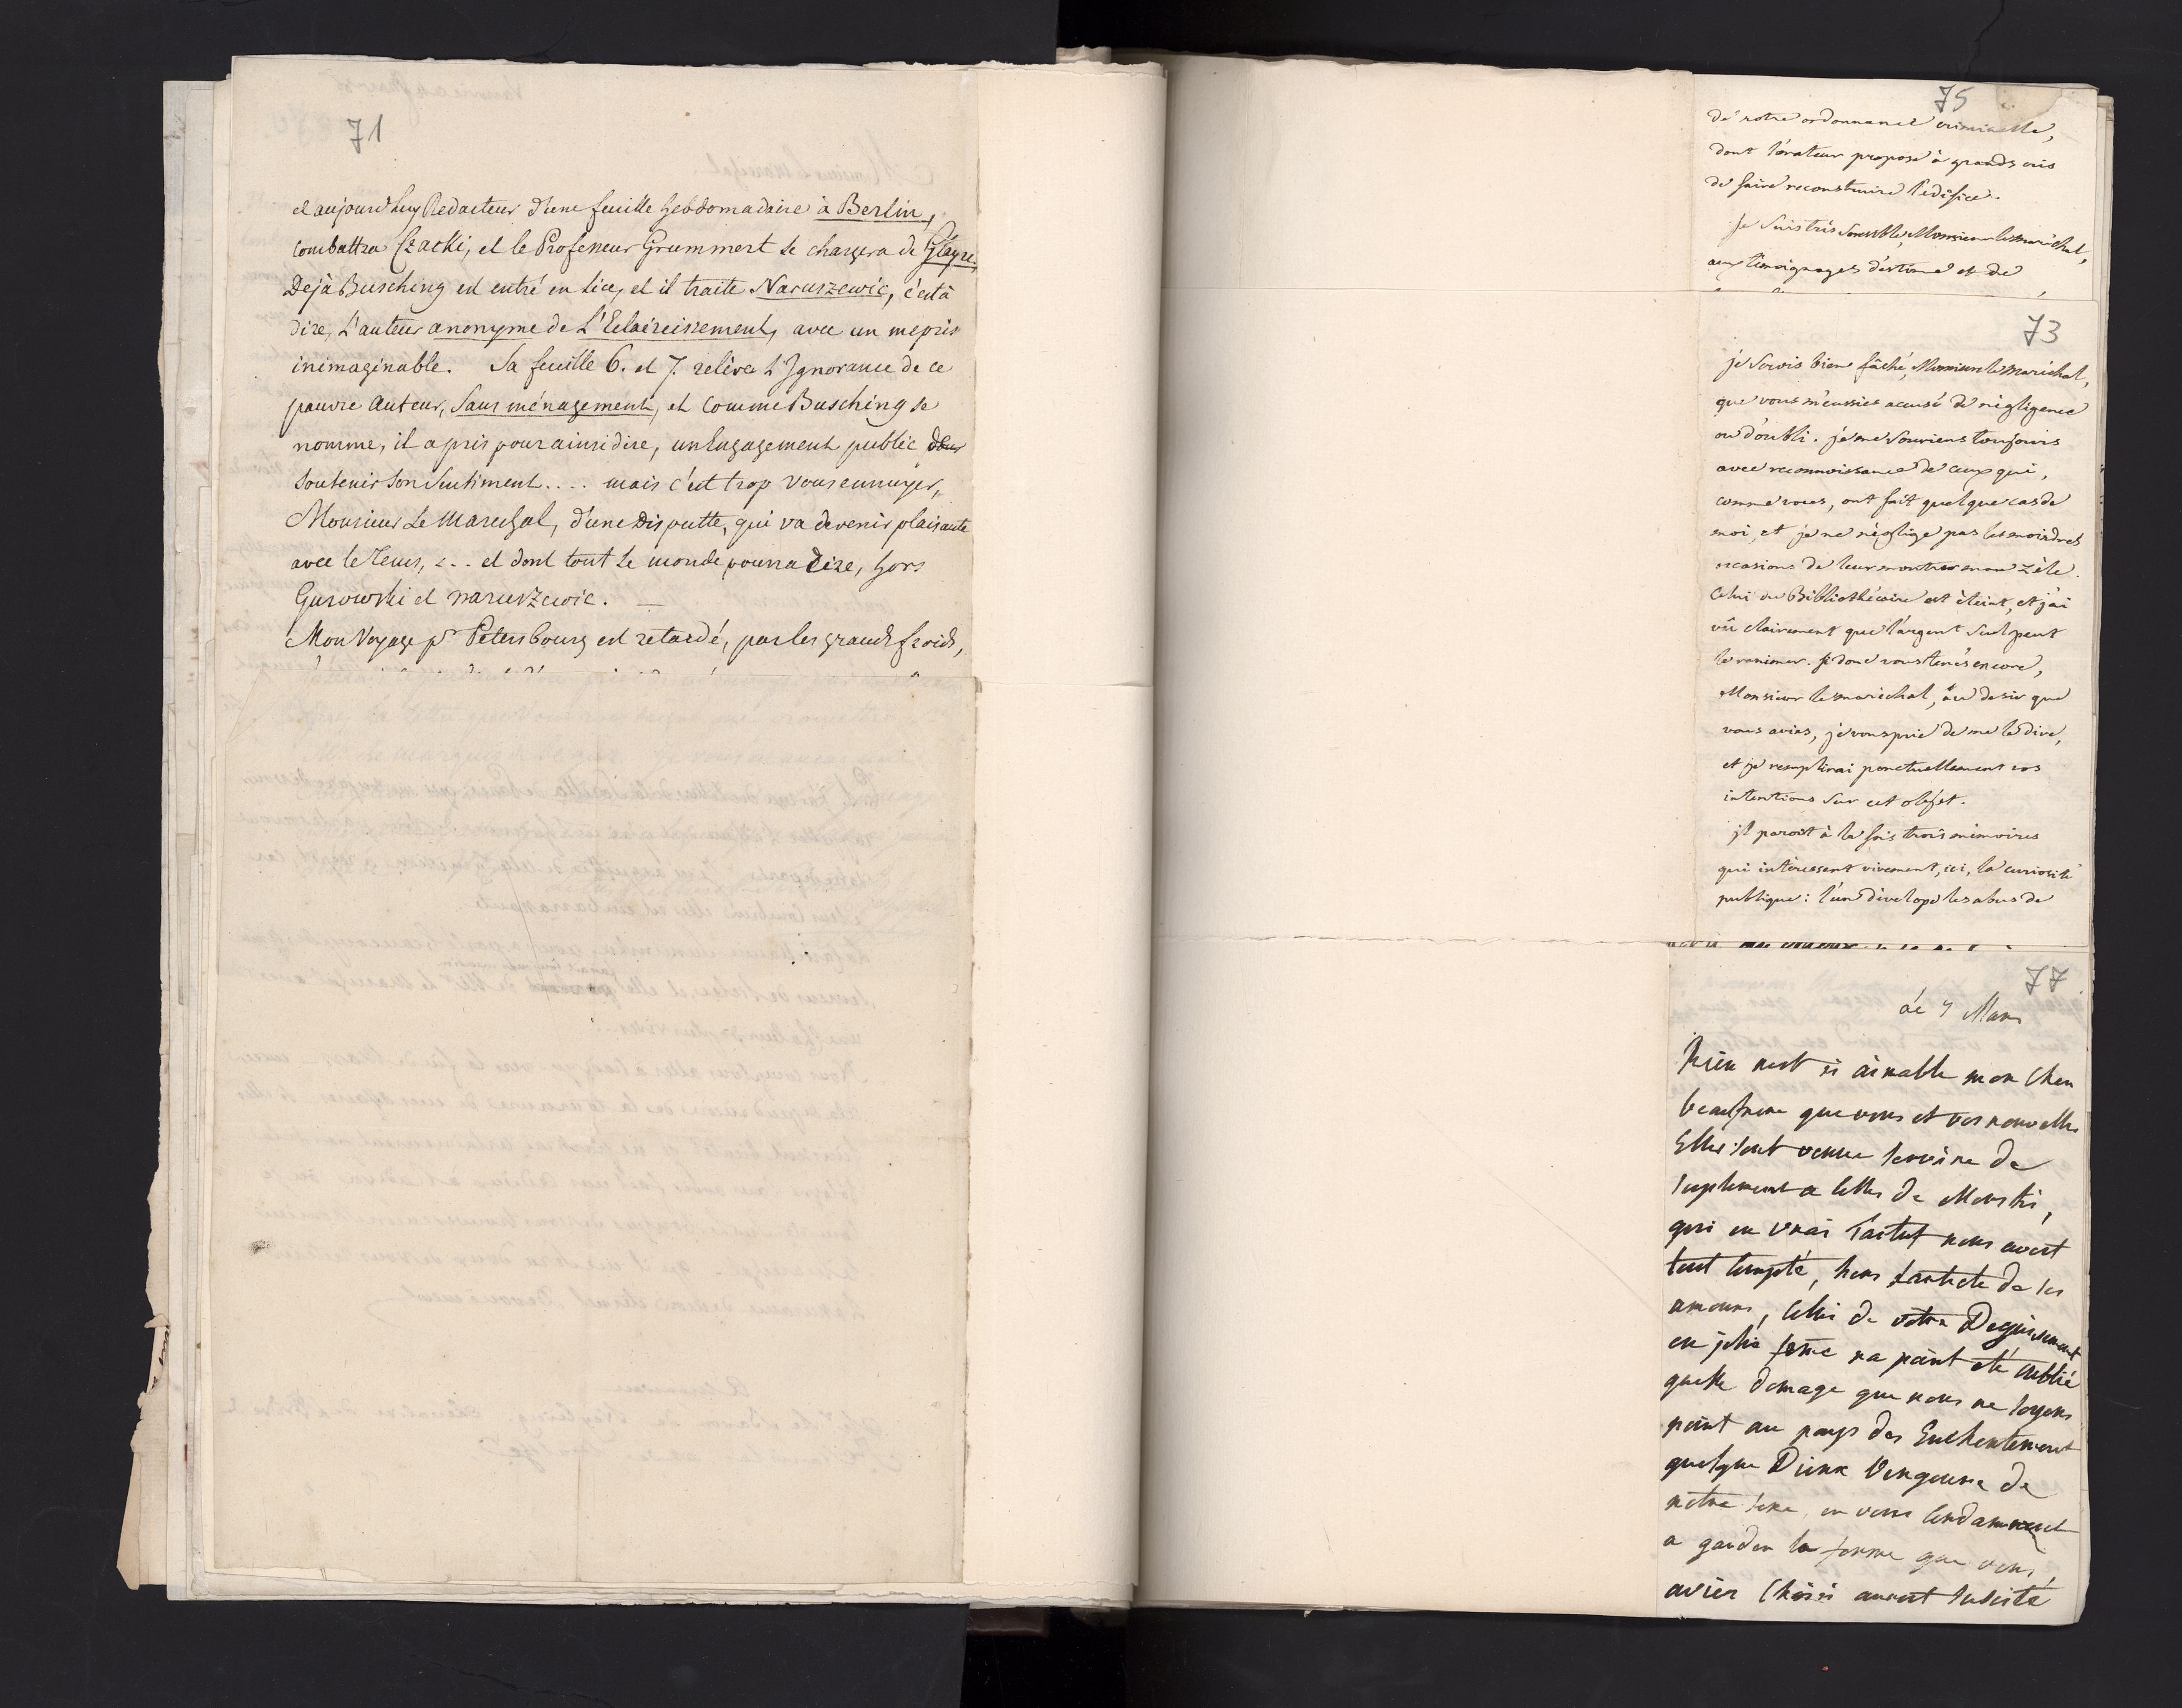 71
et aujourd'huy Redacteur d'une feuille hebdomadaire à Berlin,
combattra Czacki, et le Professeur Grummert se chargera de Glayre.
Dejà Busching est entré en lice, et il traite Naruszewic, c'est à
dire, L'auteur anonyme de L'Eclaircissement, avec un mepris
inimaginable. Sa feuille 6. et 7. relève L'Ignorance de ce
pauvre Auteur, Sans ménagement, et comme Busching se
nomme, il a pris pour ainsi dire, un Engagement public de
Soutenir Son Sentiment.... mais c'est trop vous ennuyer,
Monsieur Le Marechal, d'une Disputte, qui va devenir plaisante
avec le tems, ... et dont tout le monde pourra Rire, hors
Gurowski et Naruszewic. —
Mon Voyage pr Petersbourg est retardé, par les grands froids,
75
de notre ordonnance criminelle,
dont l'orateur propose à grands cris
de faire reconstruire l'édifice.
Je suis très sensible, Monsieur le maréchal,
aux témoignages d'estime et de
73
je serois bien fâché, Monsieur le maréchal,
que vous m'eussiés accusé de négligence
ou d'oubli. je me souviens toujours
avec reconnoissance de ceux qui,
comme vous, ont fait quelque cas de
moi, et je ne néglige pas les moindres
occasions de leur montrer mon zèle.
Celui du Bibliothécaire est éteint, et j'ai
vû clairement que l'argent seul peut
le ranimer. si donc vous tenés encore,
Monsieur le maréchal, au desir que
vous aviés, je vous prie de me le dire,
et je remplirai ponctuellement vos
intentions sur cet objet.
il paroît à la fois trois mémoires
qui intéressent vivement, ici, la curiosité
publique: l'un dévelope les abus de
77
Mars
Rien nest si aimable mon Cher
beaufrere que vous et vos nouvelles
Elles sont venue servire de
suplement a celles de
qui en vrai Tartuf nous avoit
tout compté, hors l'article de ses
amours, Celui de votre Deguisement
en jolie feme na point eté oublié
quelle domage que nous ne soyons
point au pays des Enchentement
quelque Dieux Vengeure de
notre sexe, en vous condamnant
a garder la forme que vous,
aviez Choisi auroit